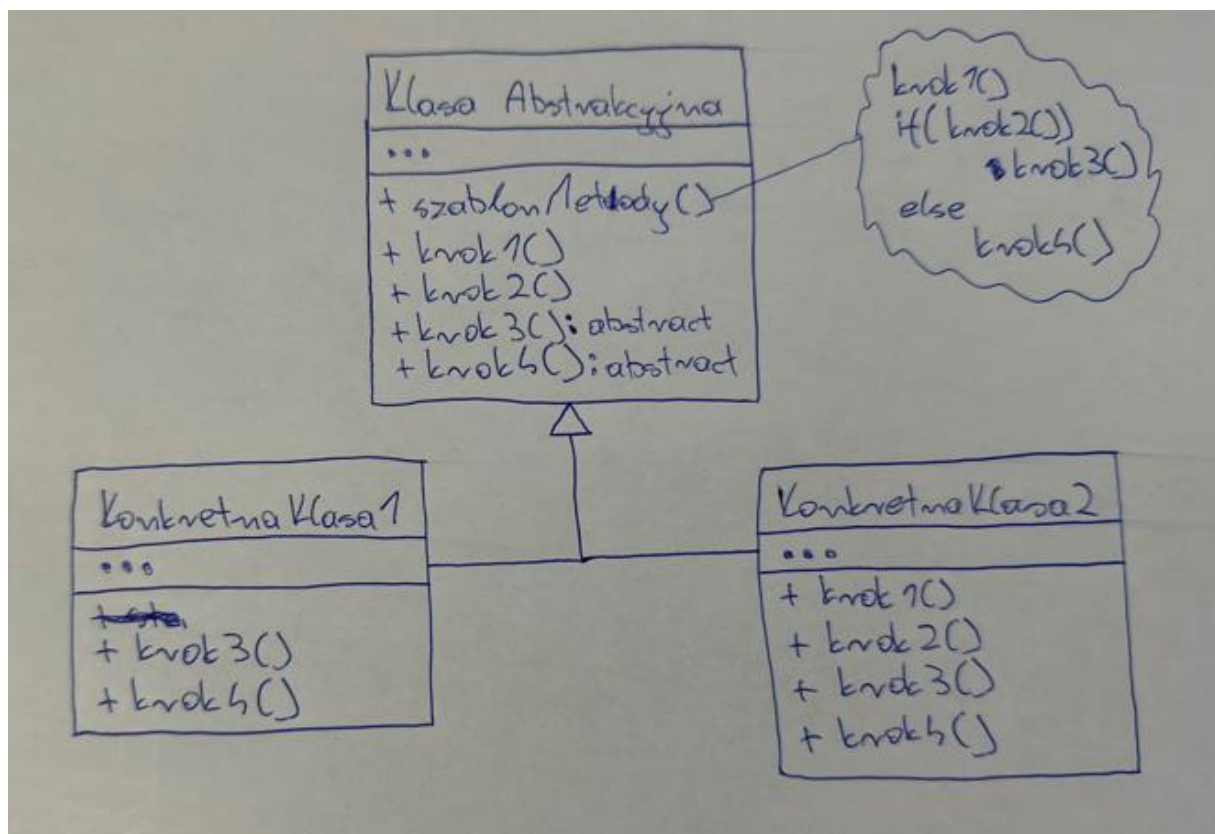 Klasa Abstrakcyjna
...
+ szablonMetody()
+ krok1()
+ krok2()
+ krok3(): abstract
+ krok4(): abstract
krok1()
if(krok2())
krok3()
else
krok4()
KonkretnaKlasa1
...
+ krok3()
+ krok4()
KonkretnaKlasa2
...
+ krok1()
+ krok2()
+ krok3()
+ krok4()